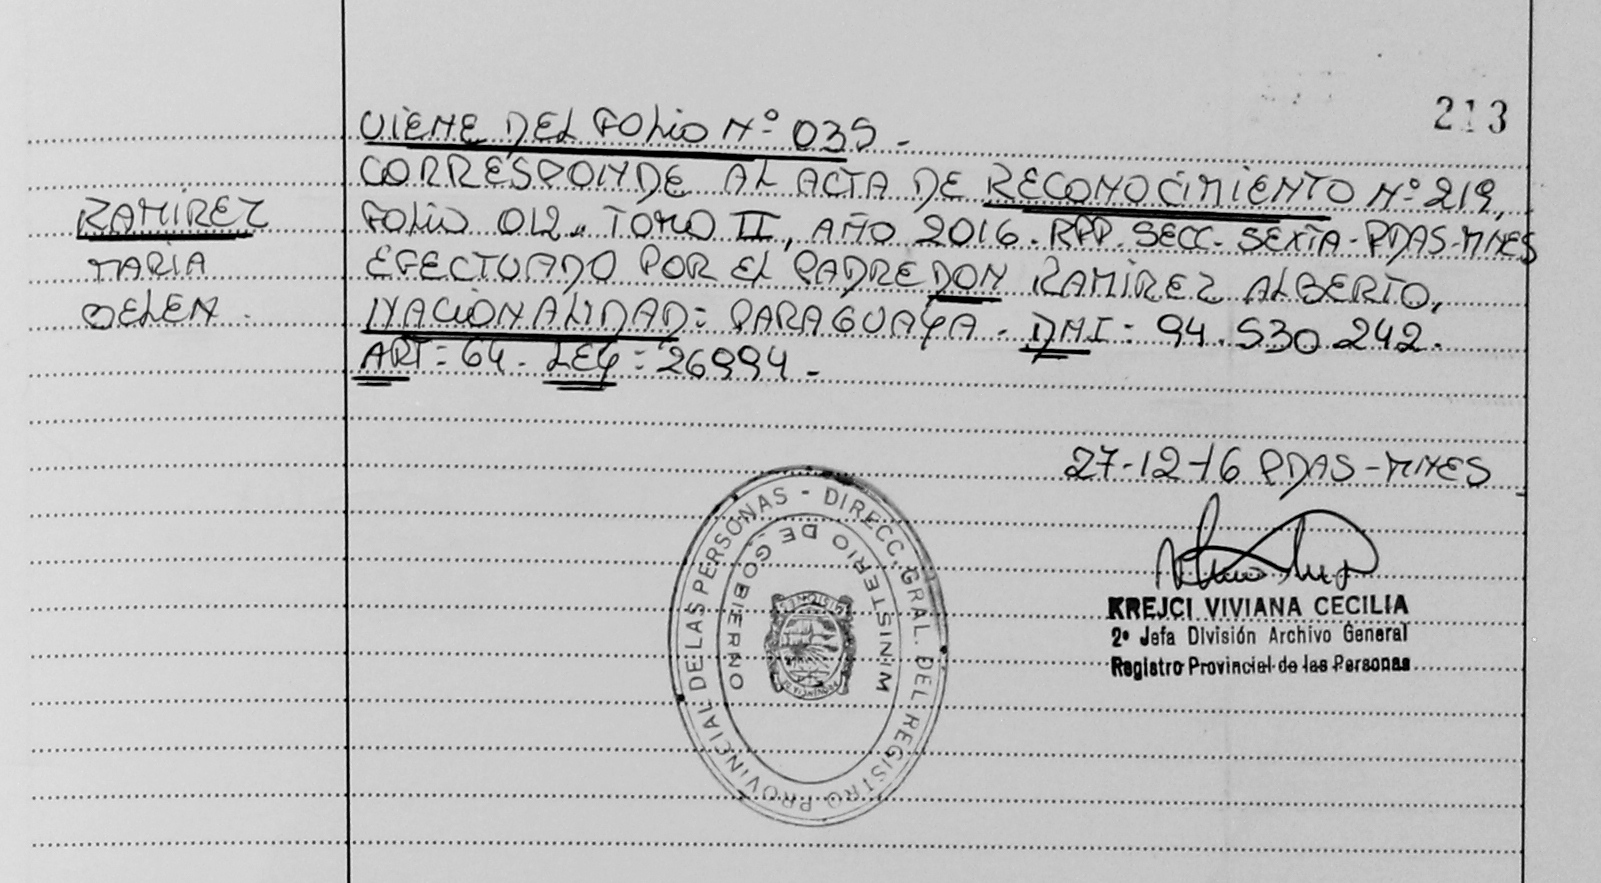 213
VIENE DEL FOLIO Nº 035 -
CORRESPONDE AL ACTA DE RECONOCIMIENTO Nº 219,
FOLIO 012. TOMO II, AÑO 2016. RPP. SECC. SEXTA - PDAS - MNES
EFECTUADO POR EL PADRE DON RAMÍREZ ALBERTO,
NACIONALIDAD: PARAGUAYA - DNI: 94.530.242.
ART: 64. LEY: 26994 -
RAMÍREZ
MARÍA
BELEN.
27-12-16 PDAS - MNES
KREJCI VIVIANA CECILIA
2º Jefa División Archivo General
Registro Provincial de las Personas
DIRECC. GRAL. DEL REGISTRO PROVINCIAL DE LAS PERSONAS -
MINISTERIO DE GOBIERNO
PROVINCIA DE
MISIONES